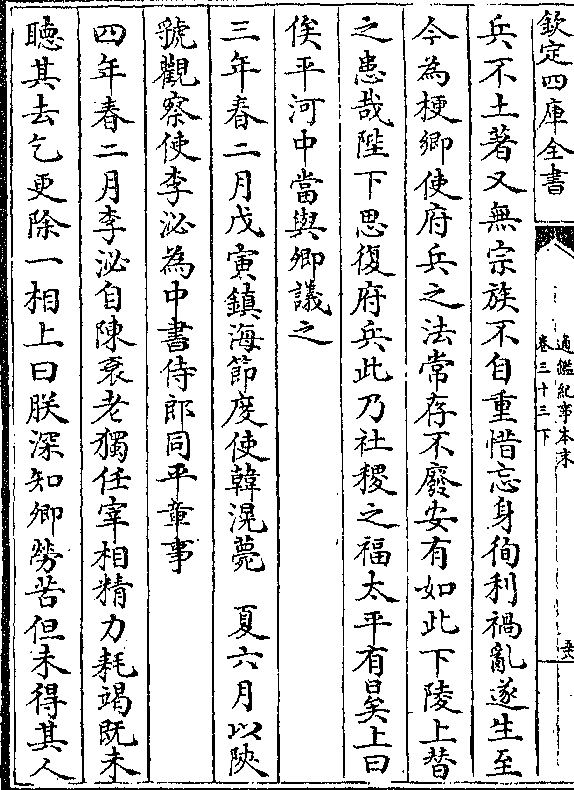 欽定四庫全書
通鑑紀事本末
卷三十三下
兵不土著又無宗族不自重惜忘身徇利禍亂遂生至
今為梗卿使府兵之法常存不廢安有如此下陵上替
之患哉陛下思復府兵此乃社稷之福太平有日矣上曰
俟平河中當與卿議之
三年春二月戊寅鎮海節度使韓滉薨　夏六月以陝
虢觀察使李泌為中書侍郎同平章事
四年春二月李泌自陳衰老獨任宰相精力耗竭既未
聽其去乞更除一相上曰朕深知卿勞苦但未得其人